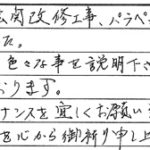 玄関改修工事、パラペ
た。
色々な事を説明下さ
おります。
ナンスを宜しくお願い
を心から御祈り申し上